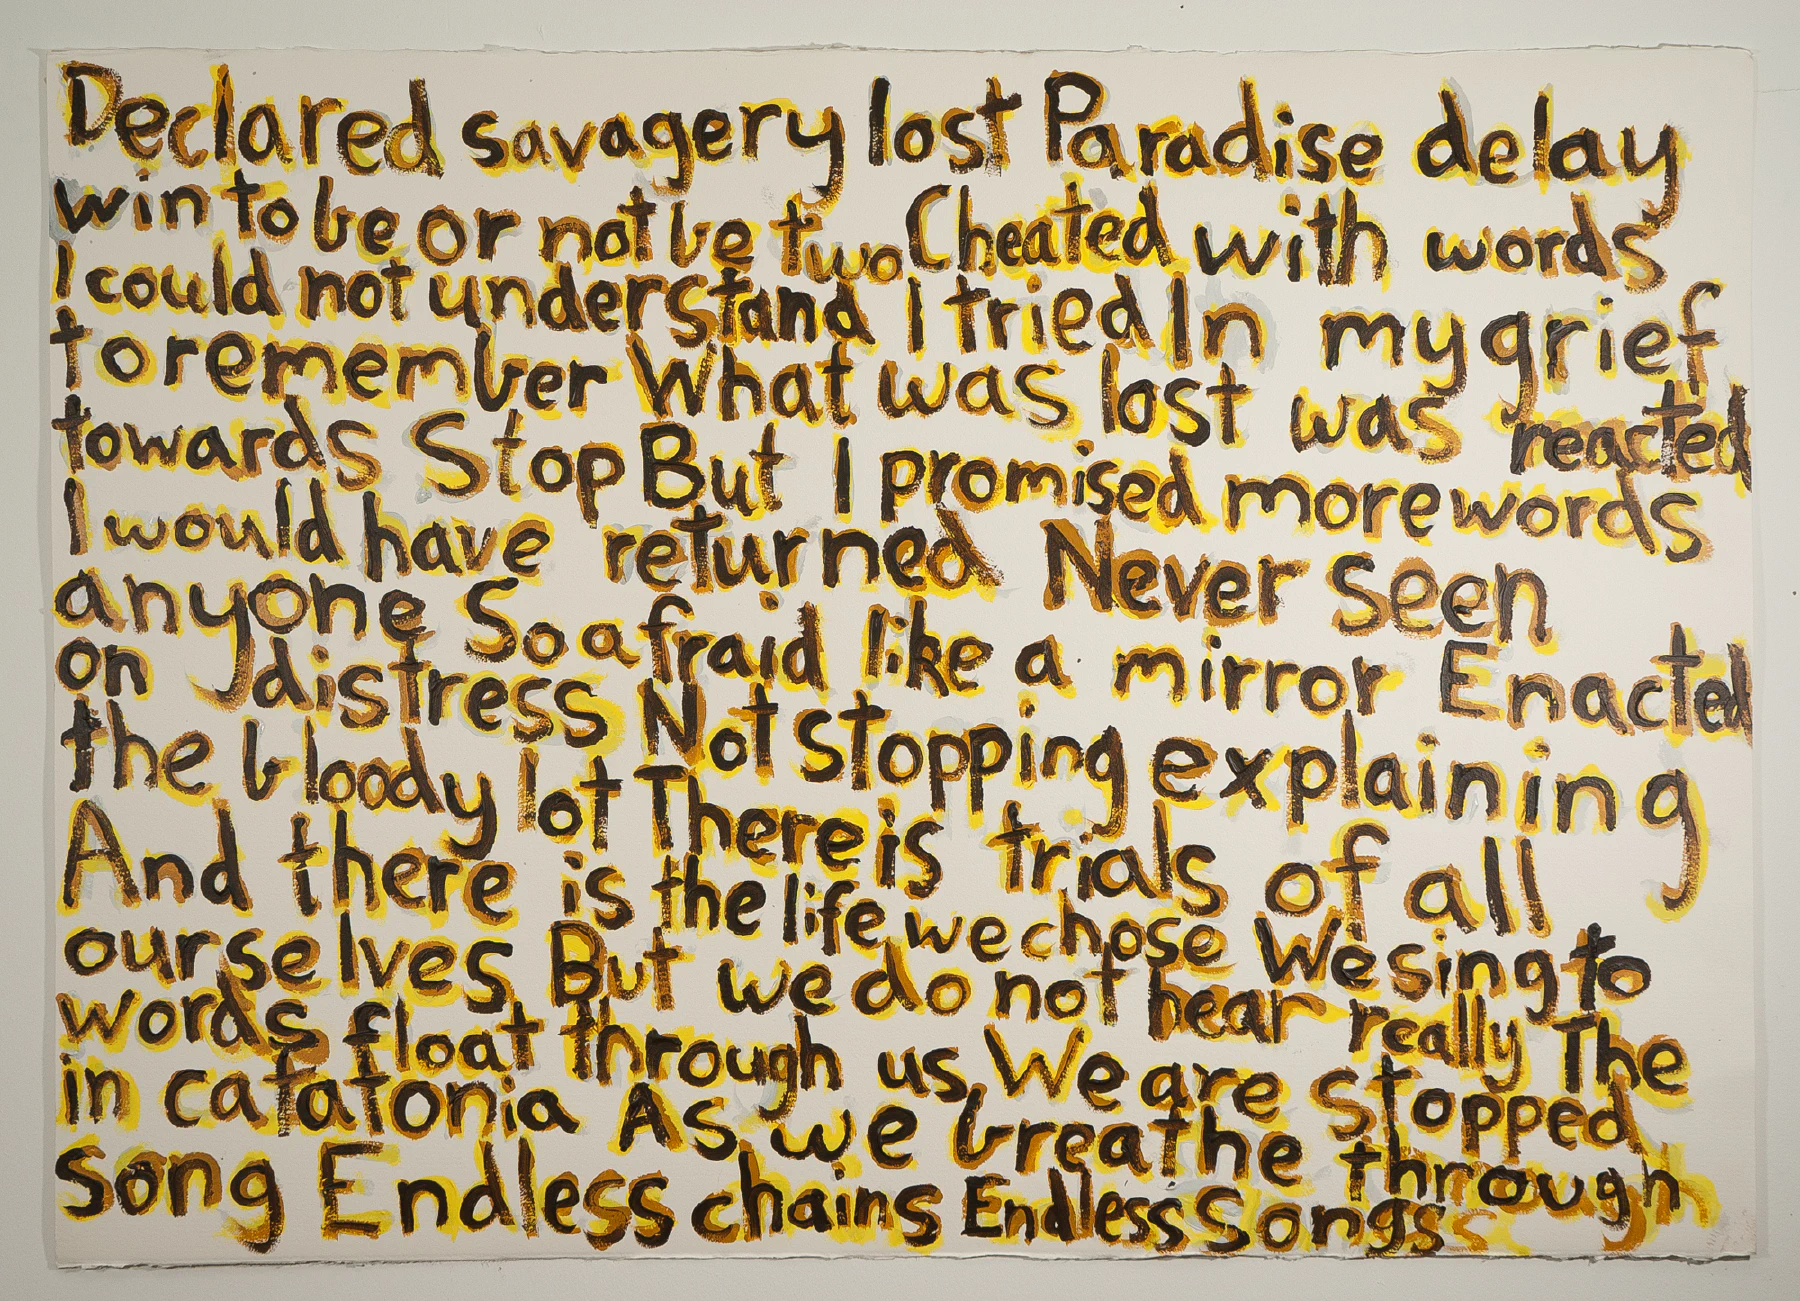 Declared savagery lost Paradise delay
win to be or not be two Cheated with words
I could not understand I tried In my grief
to remember What was lost was reacted
towards Stop But I promised more words
I would have returned Never seen
anyone So afraid like a mirror Enacted
on distress Not stopping explaining
the bloody lot There is trials of all
And there is the life we chose We sing to
ourselves But we do not hear really The
words float through us We are stopped
in catatonia As we breathe through
song Endless chains Endless Songs